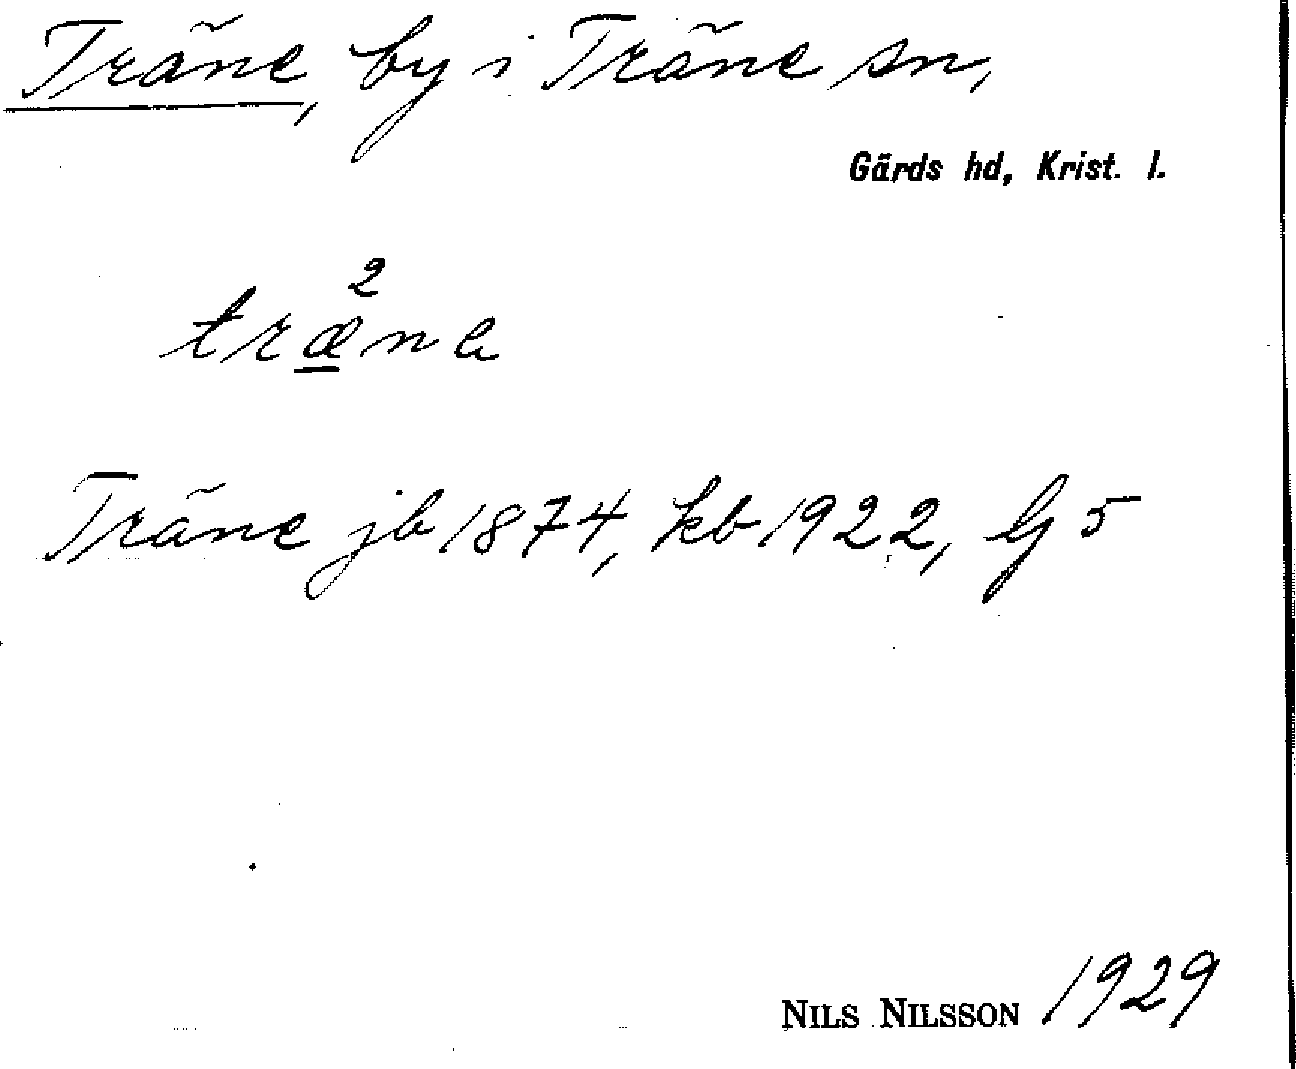 Träne, by i Träne sn,
Gärds hd, Krist. l.
2
træna
Träne jb 1874, kb 1922, G 5
NILS NILSSON 1929